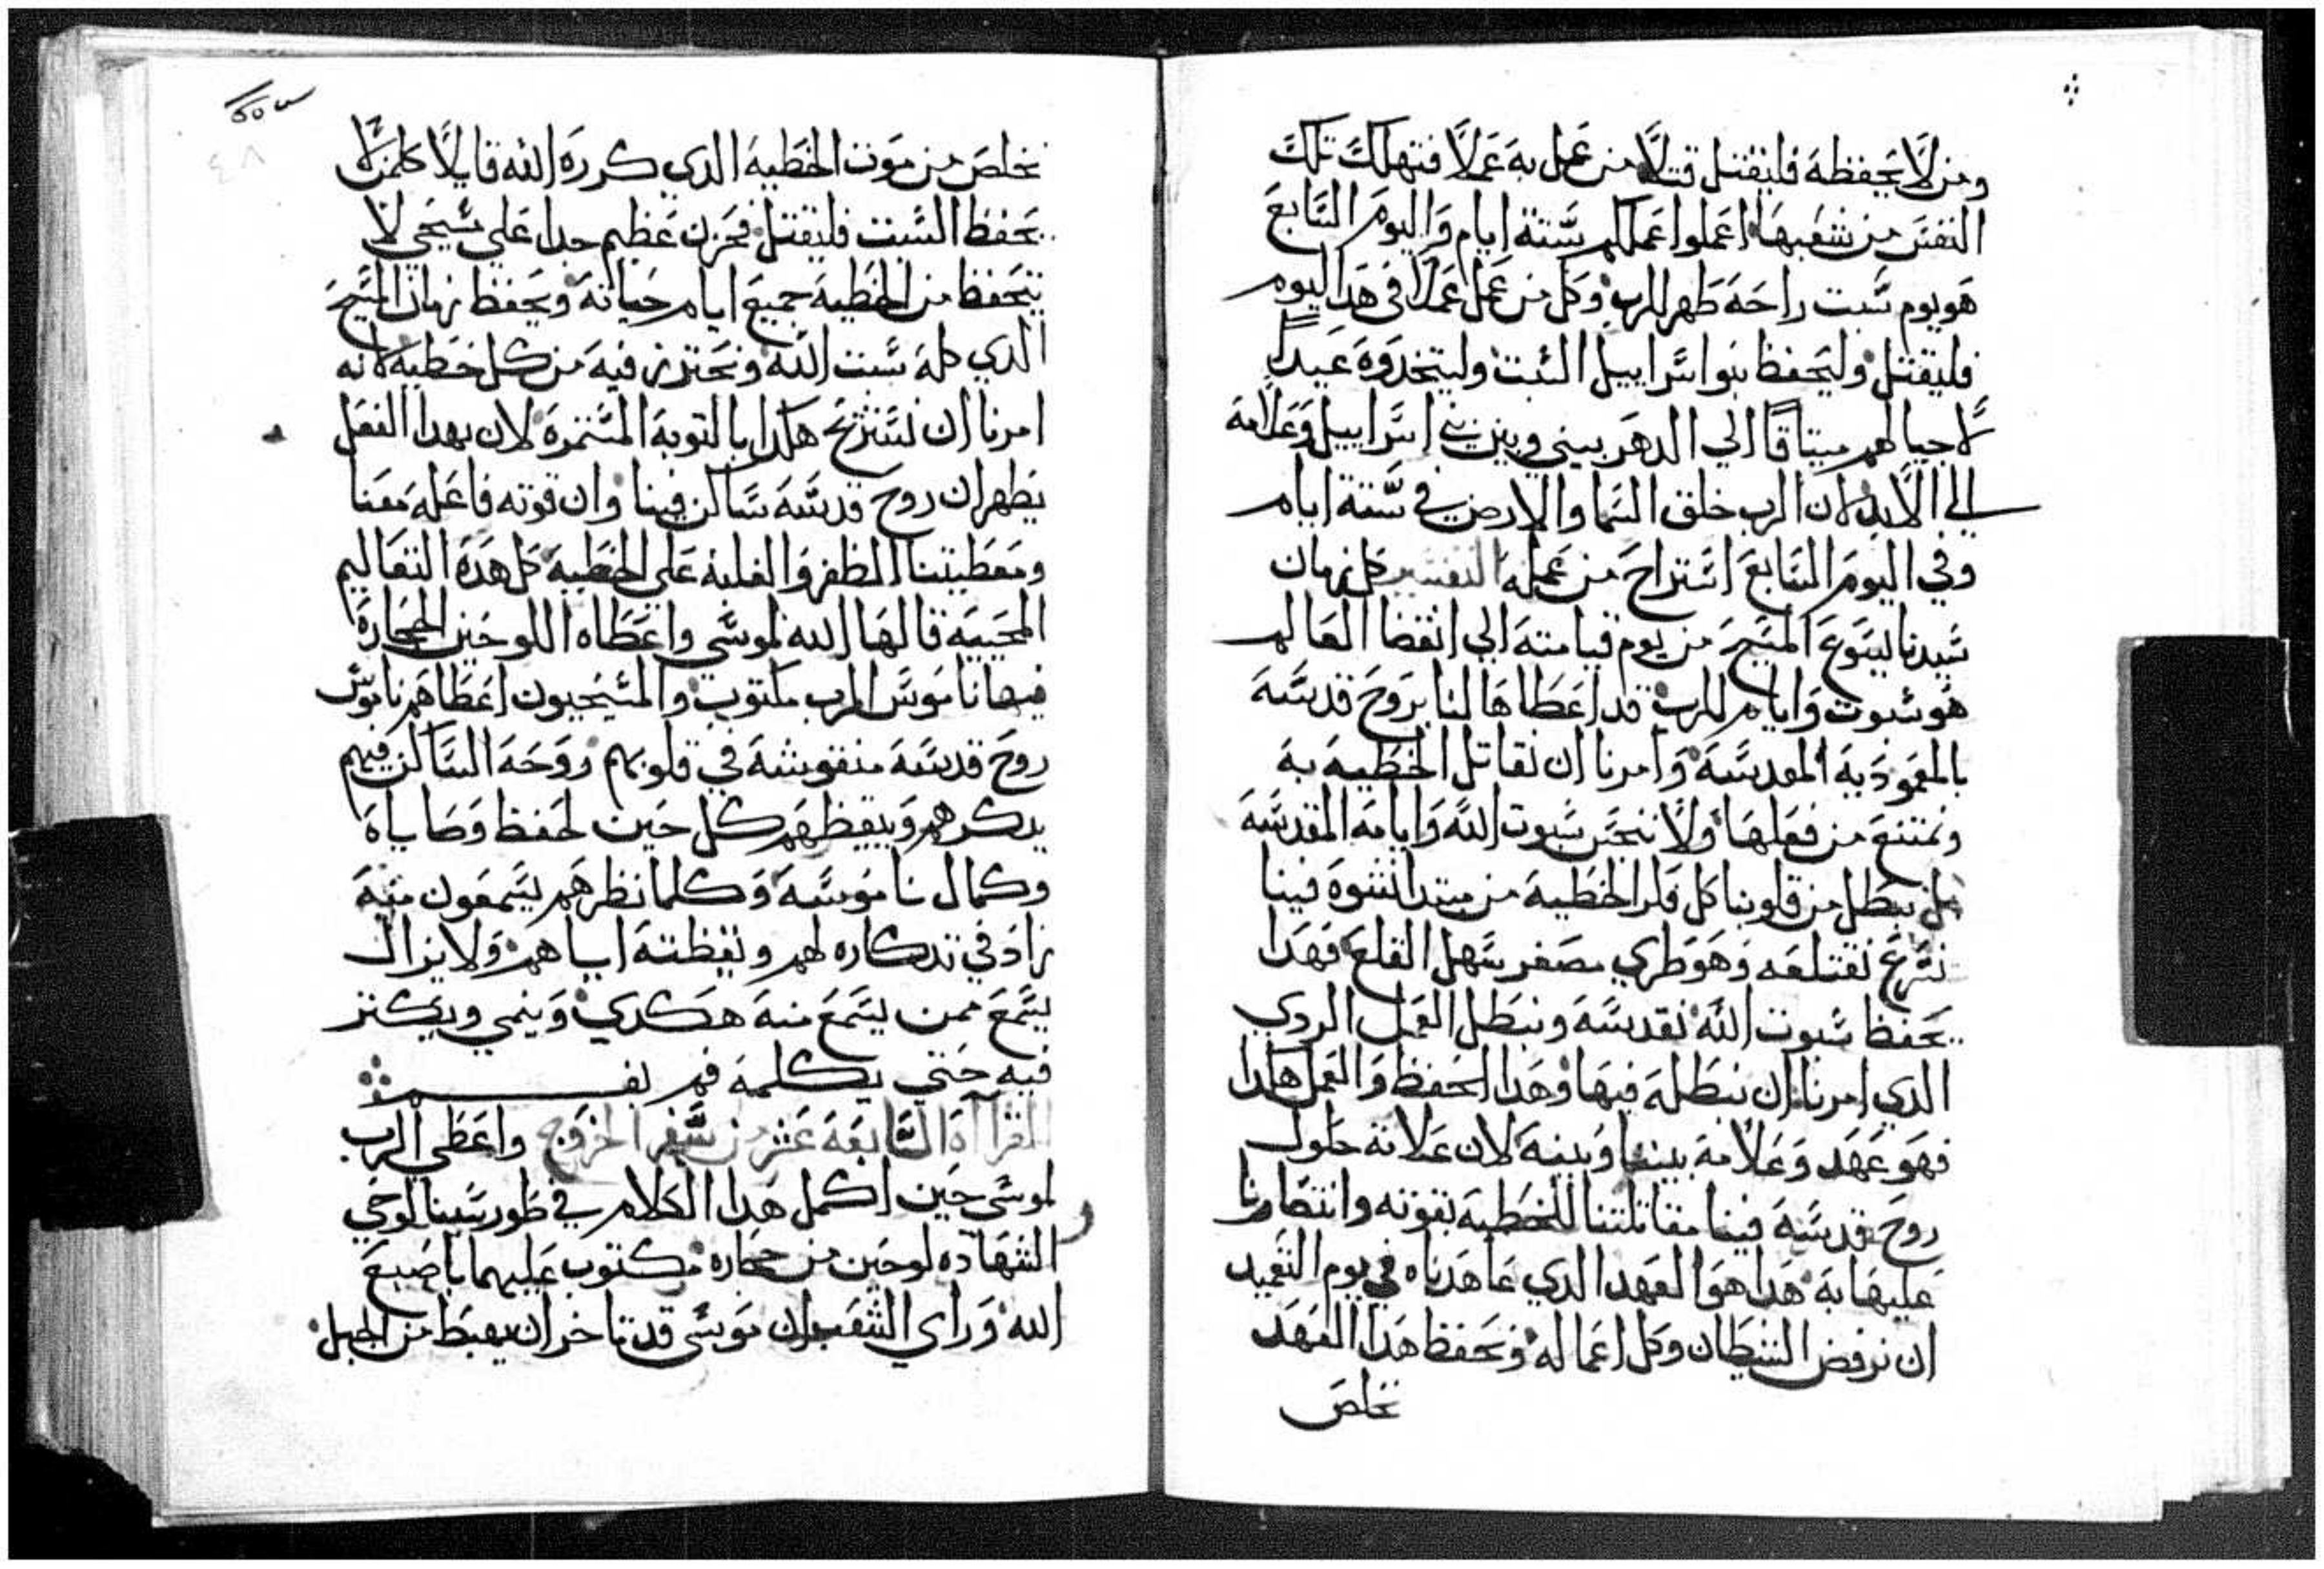 ومن لا يحفظه فليقتل قتلا من عمل به عملا فتهلك تلك
النفس من شعبها اعملوا عملكم ستة ايام واليوم السابع
هو يوم سبت راحة طهر للرب وكل من عمل عملا في هدا اليوم
فليقتل وليحفظ بنوا اسراييل السبت وليتخدوه عيدا
لاجيالهم ميتاقا الي الدهر بيني وبين بني اسراييل وعلامة
الي الابد لان الرب خلق السما والارض في ستة ايام
وفي اليوم السابع استراح من عمله التفسير كل زمان
سيدنا يسوع المسيح من يوم قيامته الي انقضا العالم
هو سبوت وايام للرب قد اعطاها لنا بروح قدسه
بالمعمودية المقدسه وامرنا ان نقاتل الخطيه به
ونمتنع من فعلها ولا ننجس سبوت الله وايامه المقدسه
بل نبطل من قلوبنا كل فكر الخطية من مبتدا نشوه فينا
نسرع نقتلعه وهو طري مصغر سهل القلع فهدا
نحفظ سبوت الله نقدسه ونبطل العمل الردي
الدي امرنا ان نبطله فيها وهدا الحفظ والعمل هكدا
فهو عهد وعلامة بيننا وبينه لان علامة حلول
روح قدسه فينا مقاتلتنا للخطية بقوته وانتصارنا
عليها به هدا هو العهد الدي عاهدناه في يوم التعميد
ان نرفض الشيطان وكل اعماله ونحفظ هدا العهد
نخلص
نخلص من موت الخطيه الدي كرره الله قايلا كلمن لا
يحفظ السبت فليقتل فحزن عظيم جدا علي مسيحي لا
يتحفظ من الخطية جميع ايام حياته ويحفظ زمان المسيح
الدي كله سبت الله ونحترز فيه من كل خطيه لانه
امرنا ان نستريح هكدا بالتوبة المستمرة لان بهدا الفعل
يظهر ان روح قدسه ساكن فينا وان قوته فاعله معنا
ومعطيتنا الظفر والغلبة علي الخطيه كل هده التعاليم
المحييه قالها الله لموسي واعطاه اللوحين الحجارة
فيها ناموس الرب مكتوب والمسيحيون اعطاهم ناموس
روح قدسه منقوشه في قلوبهم وروحه الساكن فيهم
يدكرهم وييقظهم كل حين لحفظ وصاياه
وكمال ناموسه وكلما نظرهم يسمعون منه
زاد في تدكاره لهم وتيقظته اياهم ولا يزال
يسمع ممن يسمع منه هكدي وينمي ويكتر
فيه حتي يكلمه فم بفـــم
القراآة السابعة عشر من سفر الخروج واعطي الرب
لموسي حين اكمل هدا الكلام في طور سينا لوحي
الشهاده لوحين من حجاره مكتوب عليهما باصبع
الله وراي الشعب ان موسي قد تاخر ان يهبط من الجبل